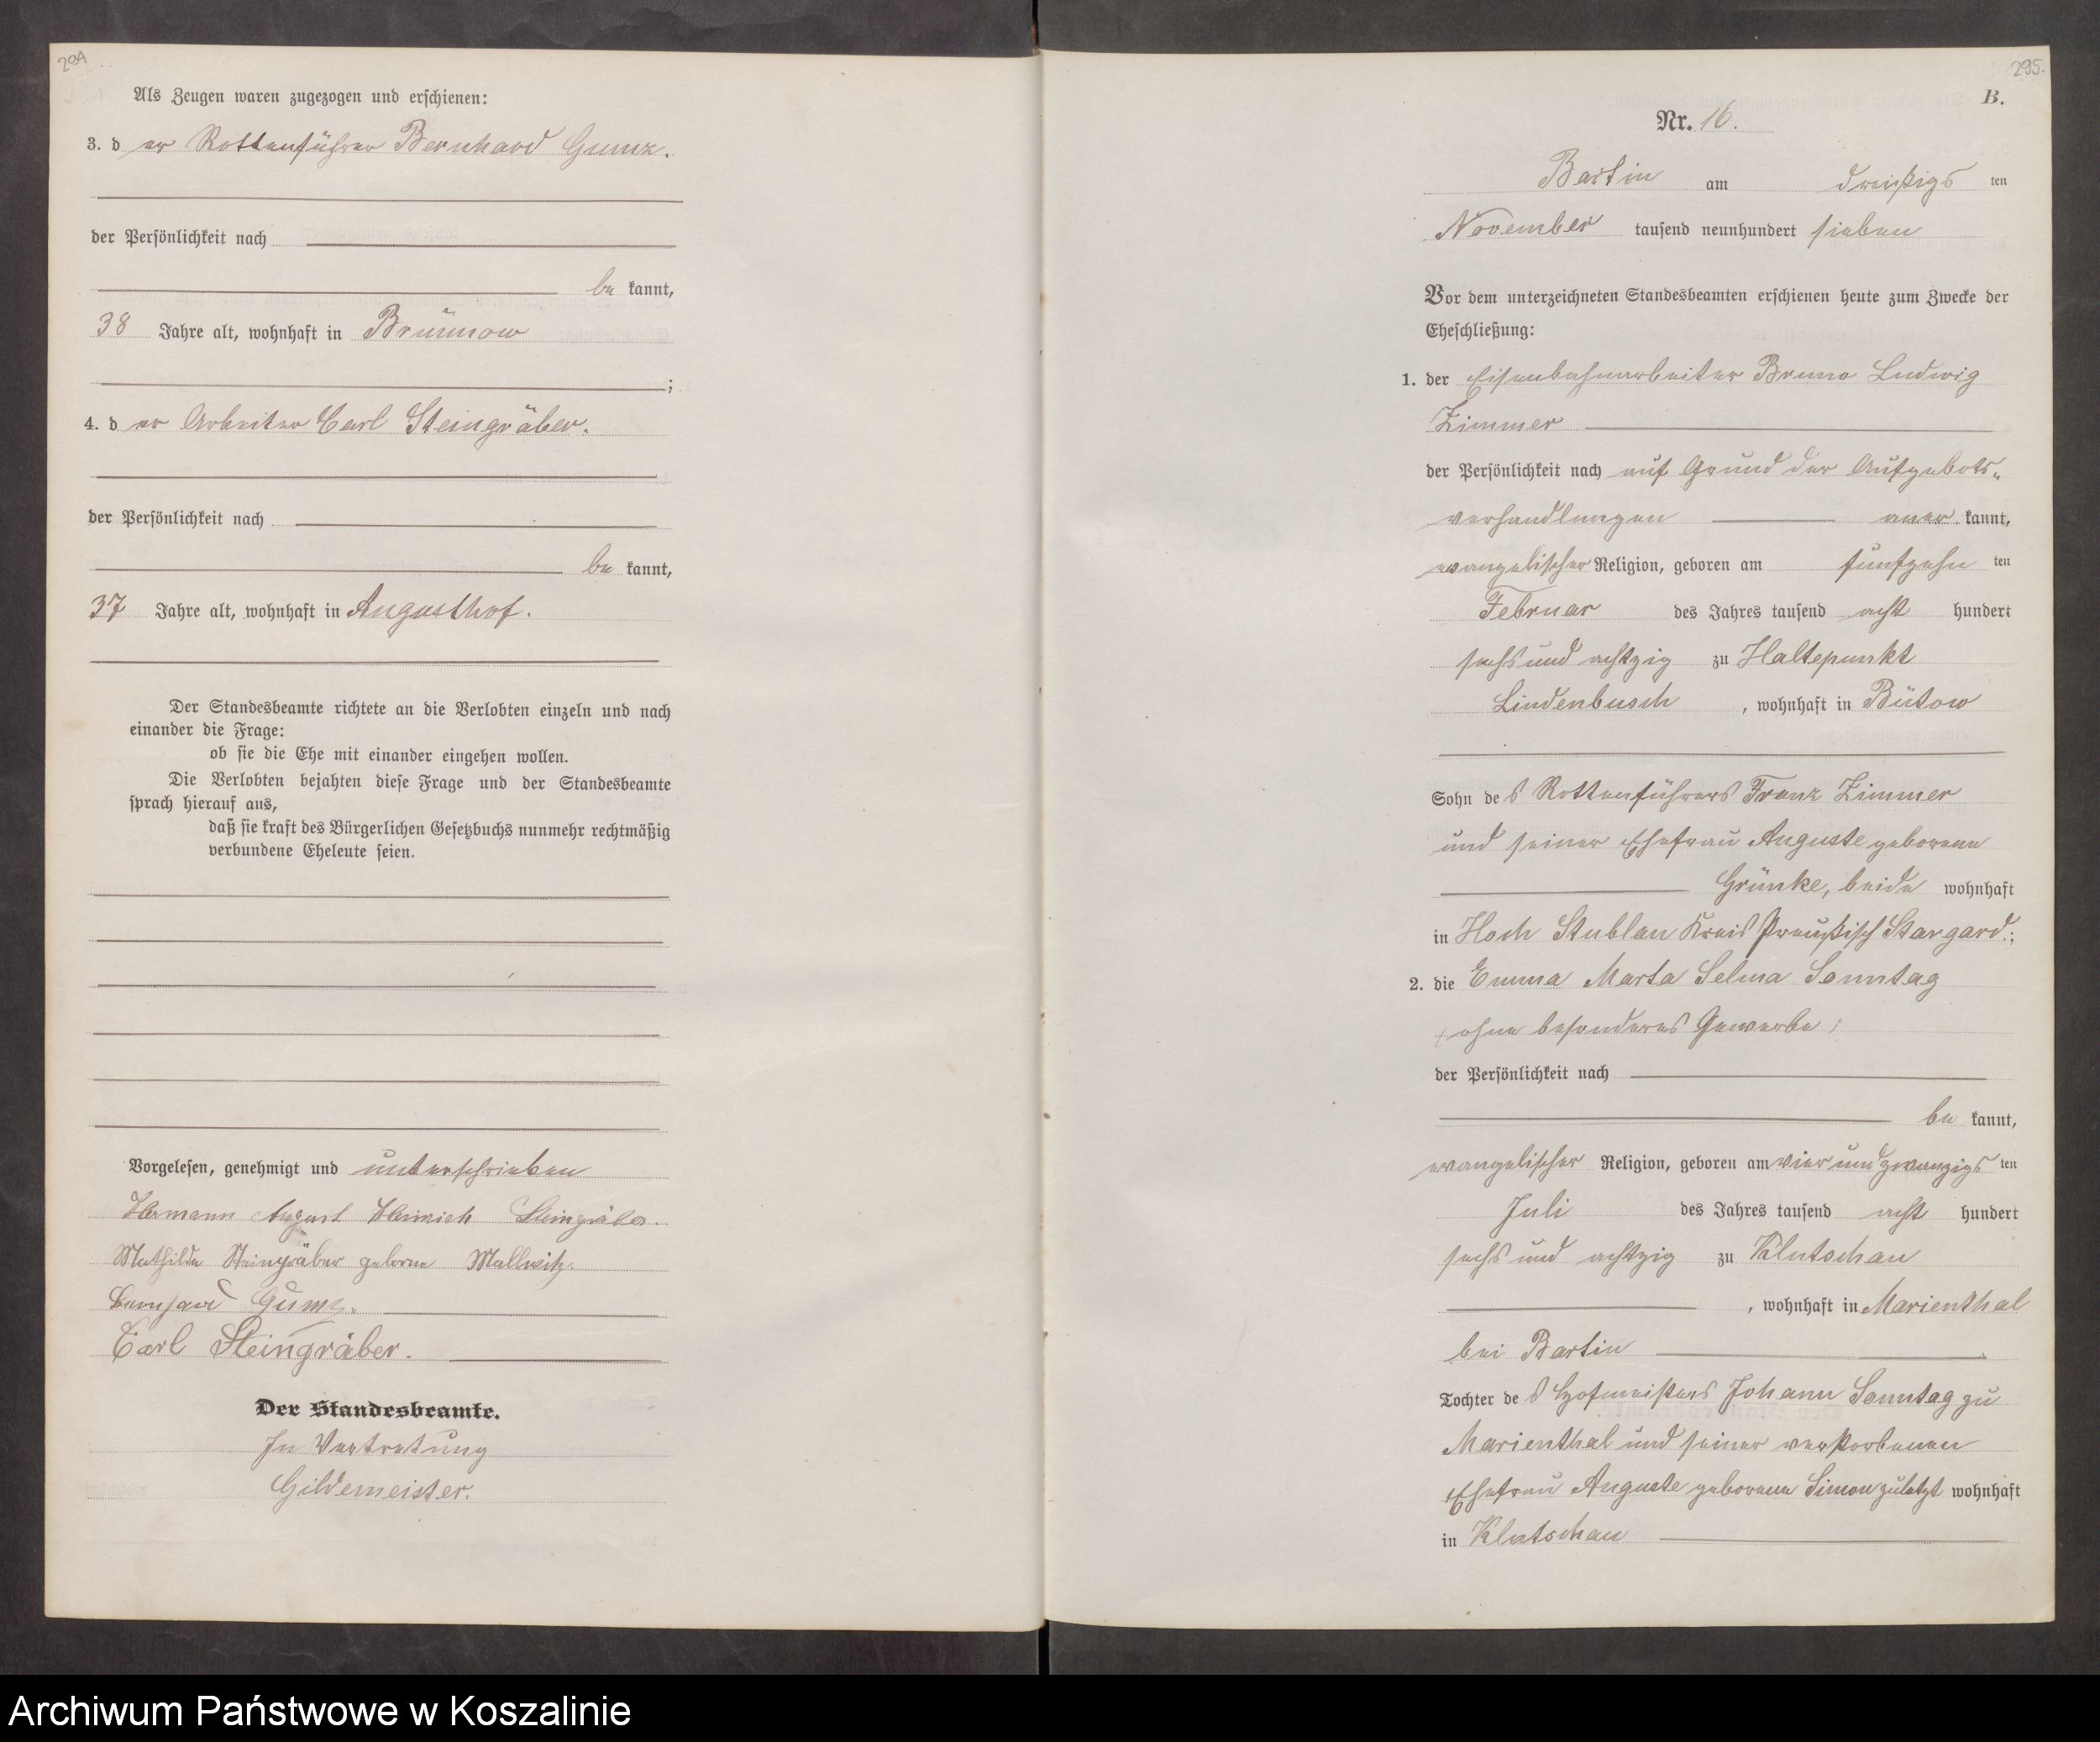 294
Als Zeugen waren zugezogen und erschienen:
3. d er Rottenführer Bernhard Gumz.
der Persönlichkeit nach
be kannt,
38 Jahre alt, wohnhaft in Brünnow
;
4. d er Arbeiter Carl Steingräber.
der Persönlichkeit nach
be kannt,
37 Jahre alt, wohnhaft in Augusthof.
Der Standesbeamte richtete an die Verlobten einzeln und nach
einander die Frage:
ob sie die Ehe mit einander eingehen wollen.
Die Verlobten bejahten diese Frage und der Standesbeamte
sprach hierauf aus,
daß sie kraft des Bürgerlichen Gesetzbuchs nunmehr rechtmäßig
verbundene Eheleute seien.
Vorgelesen, genehmigt und unterschrieben
Hermann August Heinrich Steingräber.
Mathilde Steingräber geborne Mallwitz.
Bernhard Gumz.
Carl Steingräber.
Der Standesbeamte.
In Vertretung
Gildemeister.
295.
B.
Nr. 16.
Bartin am dreißigs ten
November tausend neunhundert sieben
Vor dem unterzeichneten Standesbeamten erschienen heute zum Zwecke der
Eheschließung:
1. der Eisenbahnarbeiter Bruno Ludwig
Zimmer
der Persönlichkeit nach auf Grund der Aufgebots-
verhandlungen aner kannt,
evangelischer Religion, geboren am fünfzehn ten
Februar des Jahres tausend acht hundert
sechs und achtzig zu Haltepunkt
Lindenbusch , wohnhaft in Bütow
Sohn de s Rottenführers Franz Zimmer
und seiner Ehefrau Auguste geborene
Grünke, beide wohnhaft
in Hoch Stüblau Kreis Preußisch Stargard.;
2. die Emma Marta Selma Sonntag
(ohne besonderes Gewerbe)
der Persönlichkeit nach
be kannt,
evangelischer Religion, geboren am vier und zwanzigs ten
Juli des Jahres tausend acht hundert
sechs und achtzig zu Klutschau
, wohnhaft in Marienthal
bei Bartin
Tochter de s Hofmeisters Johann Sonntag zu
Marienthal und seiner verstorbenen
Ehefrau Auguste geborene Simon zuletzt wohnhaft
in Klutschau
Archiwum Państwowe w Koszalinie